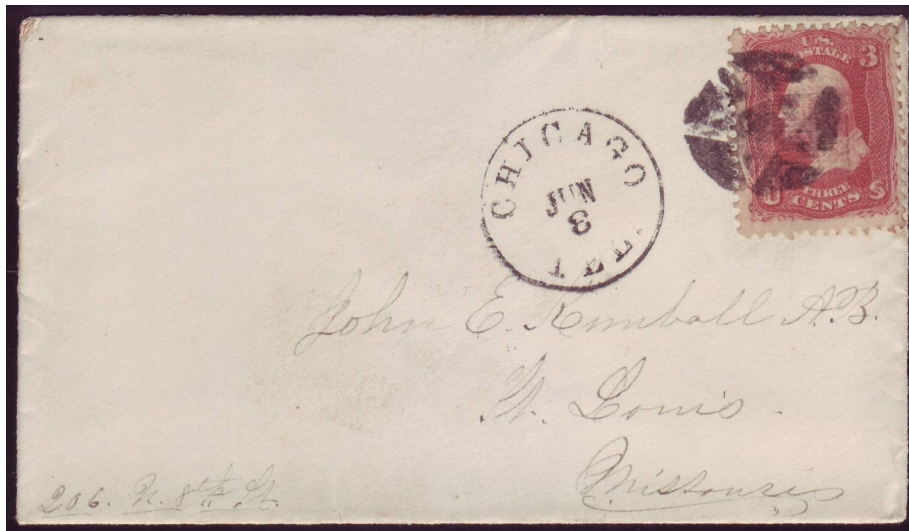 U.S. POSTAGE 3
THREE
U CENTS S
CHICAGO
JUN
8
ILL.
John E. Kimball A.B.
St. Louis
Missouri
206. N. 8th St.